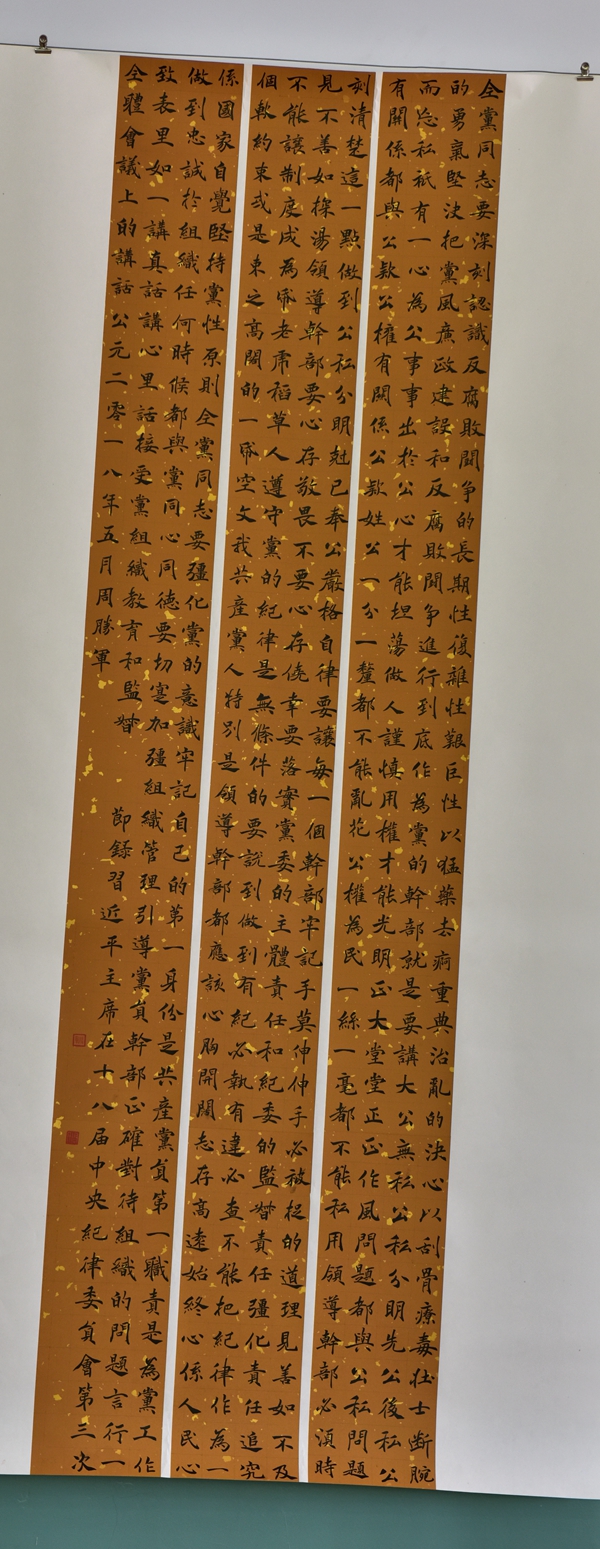 全黨同志要深刻認識反腐敗鬪争的長期性復雜性艱巨性以猛藥去痾重典治亂的决心以刮骨療毒壯士断腕
的勇氣堅决把黨風廉政建設和反腐敗鬪争進行到底作為黨的幹部就是要講大公無私公私分明先公後私公
而忘私衹有一心為公事事出於公心才能坦蕩做人謹慎用權才能光明正大堂堂正正作風問題都與公私問題
有関係都與公款公權有関係公款姓公一分一釐都不能亂花公權為民一絲一毫都不能私用領導幹部必須時
刻清楚這一點做到公私分明尅己奉公嚴格自律要讓每一個幹部牢記手莫伸伸手必被捉的道理見善如不及
見不善如探湯領導幹部要心存敬畏不要心存僥幸要落實黨委的主體責任和紀委的監督責任彊化責任追究
不能讓制度成為紙老虎稻草人遵守黨的紀律是無條件的要説到做到有紀必執有違必查不能把紀律作為一
個軟約束或是束之高閣的一紙空文我共産黨人特别是領導幹部都應該心胸開闊志存高遠始終心係人民心
係國家自覺堅持黨性原則全黨同志要彊化黨的意識牢記自己的第一身份是共産黨員第一職責是為黨工作
做到忠誠於組織任何時候都與黨同心同德要切寔加彊組織管理引導黨員幹部正確對待組織的問題言行一
致表里如一講真話講心里話接受黨組織教育和監督 節録習近平主席在十八届中央紀律委員會第三次
全體會議上的講話公元二零一八年五月周勝軍